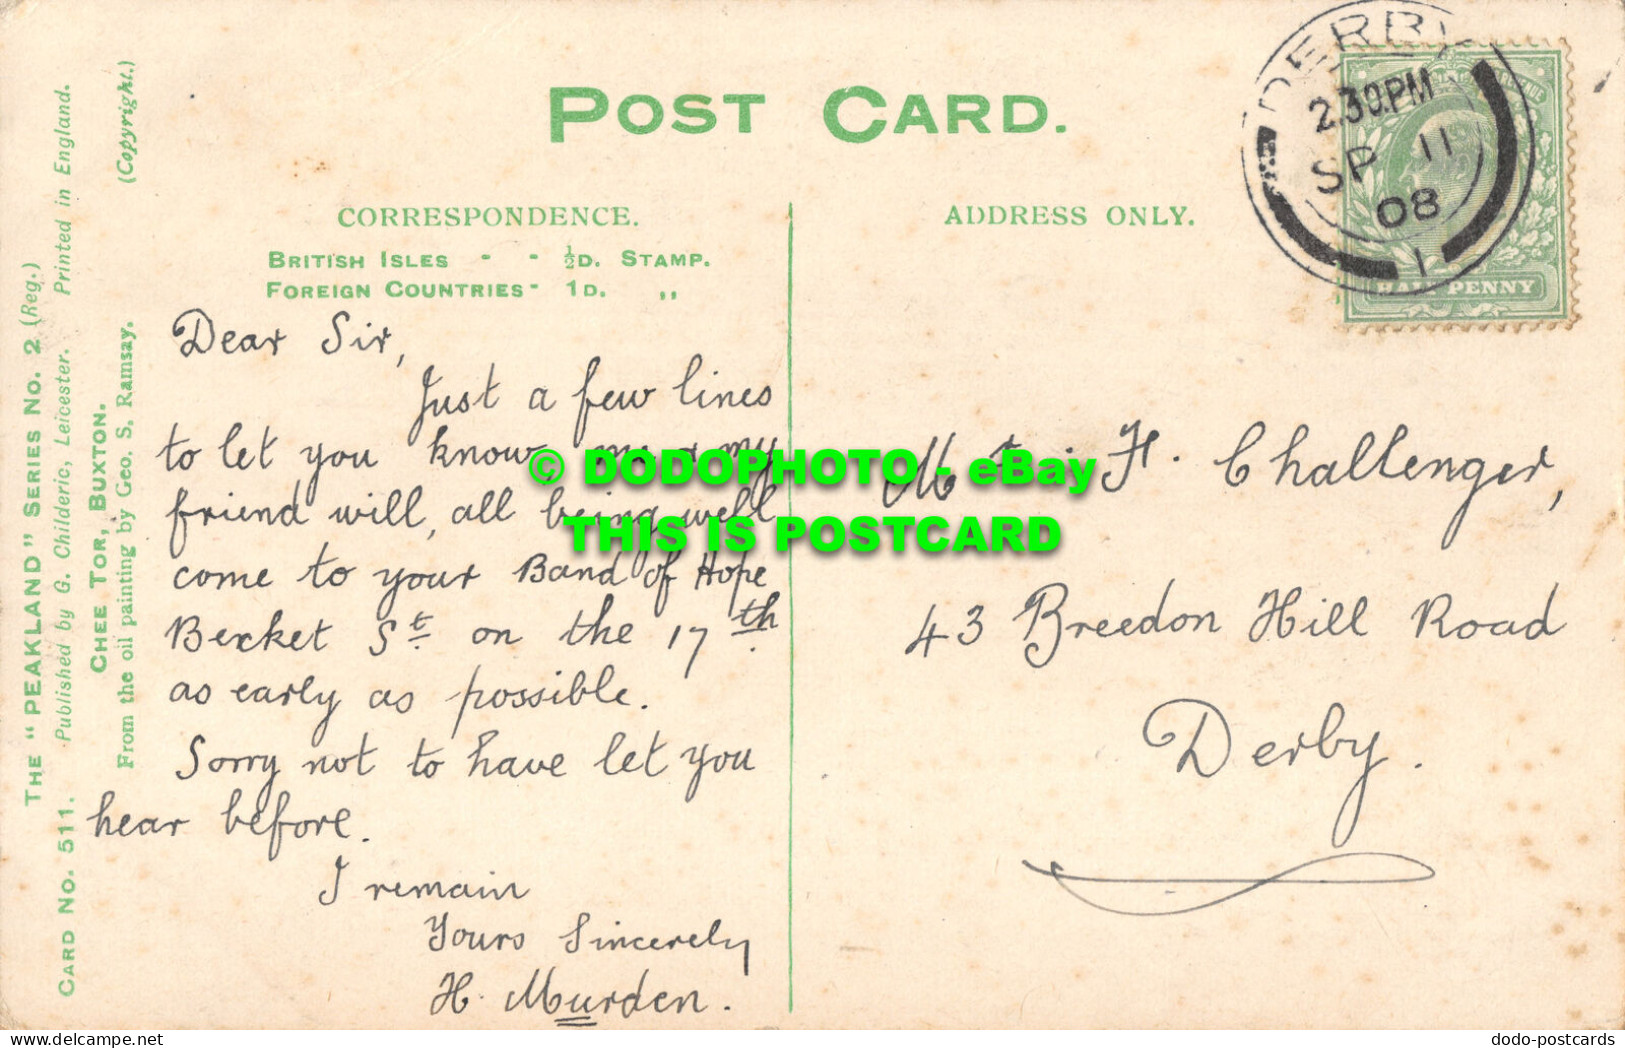 POST CARD.
CORRESPONDENCE.
BRITISH ISLES - - ½D. STAMP.
FOREIGN COUNTRIES - 1D. ,,
ADDRESS ONLY.
DERBY
2.30.PM
SP 11
08
1
HALF PENNY
THE "PEAKLAND" SERIES No. 2 (Reg.)
CARD No. 511. Published by G. Childeric, Leicester. Printed in England.
CHEE TOR, BUXTON.
From the oil painting by Geo. S. Ramsay. (Copyright.)
Dear Sir,
Just a few lines
to let you know me & my
friend will, all being well
come to your Band of Hope
Becket St on the 17th
as early as possible.
Sorry not to have let you
hear before.
I remain
Yours Sincerely
H. Murden.
Mr. H. Challenger,
43 Breedon Hill Road
Derby.
© DODOPHOTO - eBay
THIS IS POSTCARD
www.delcampe.net
dodo-postcards